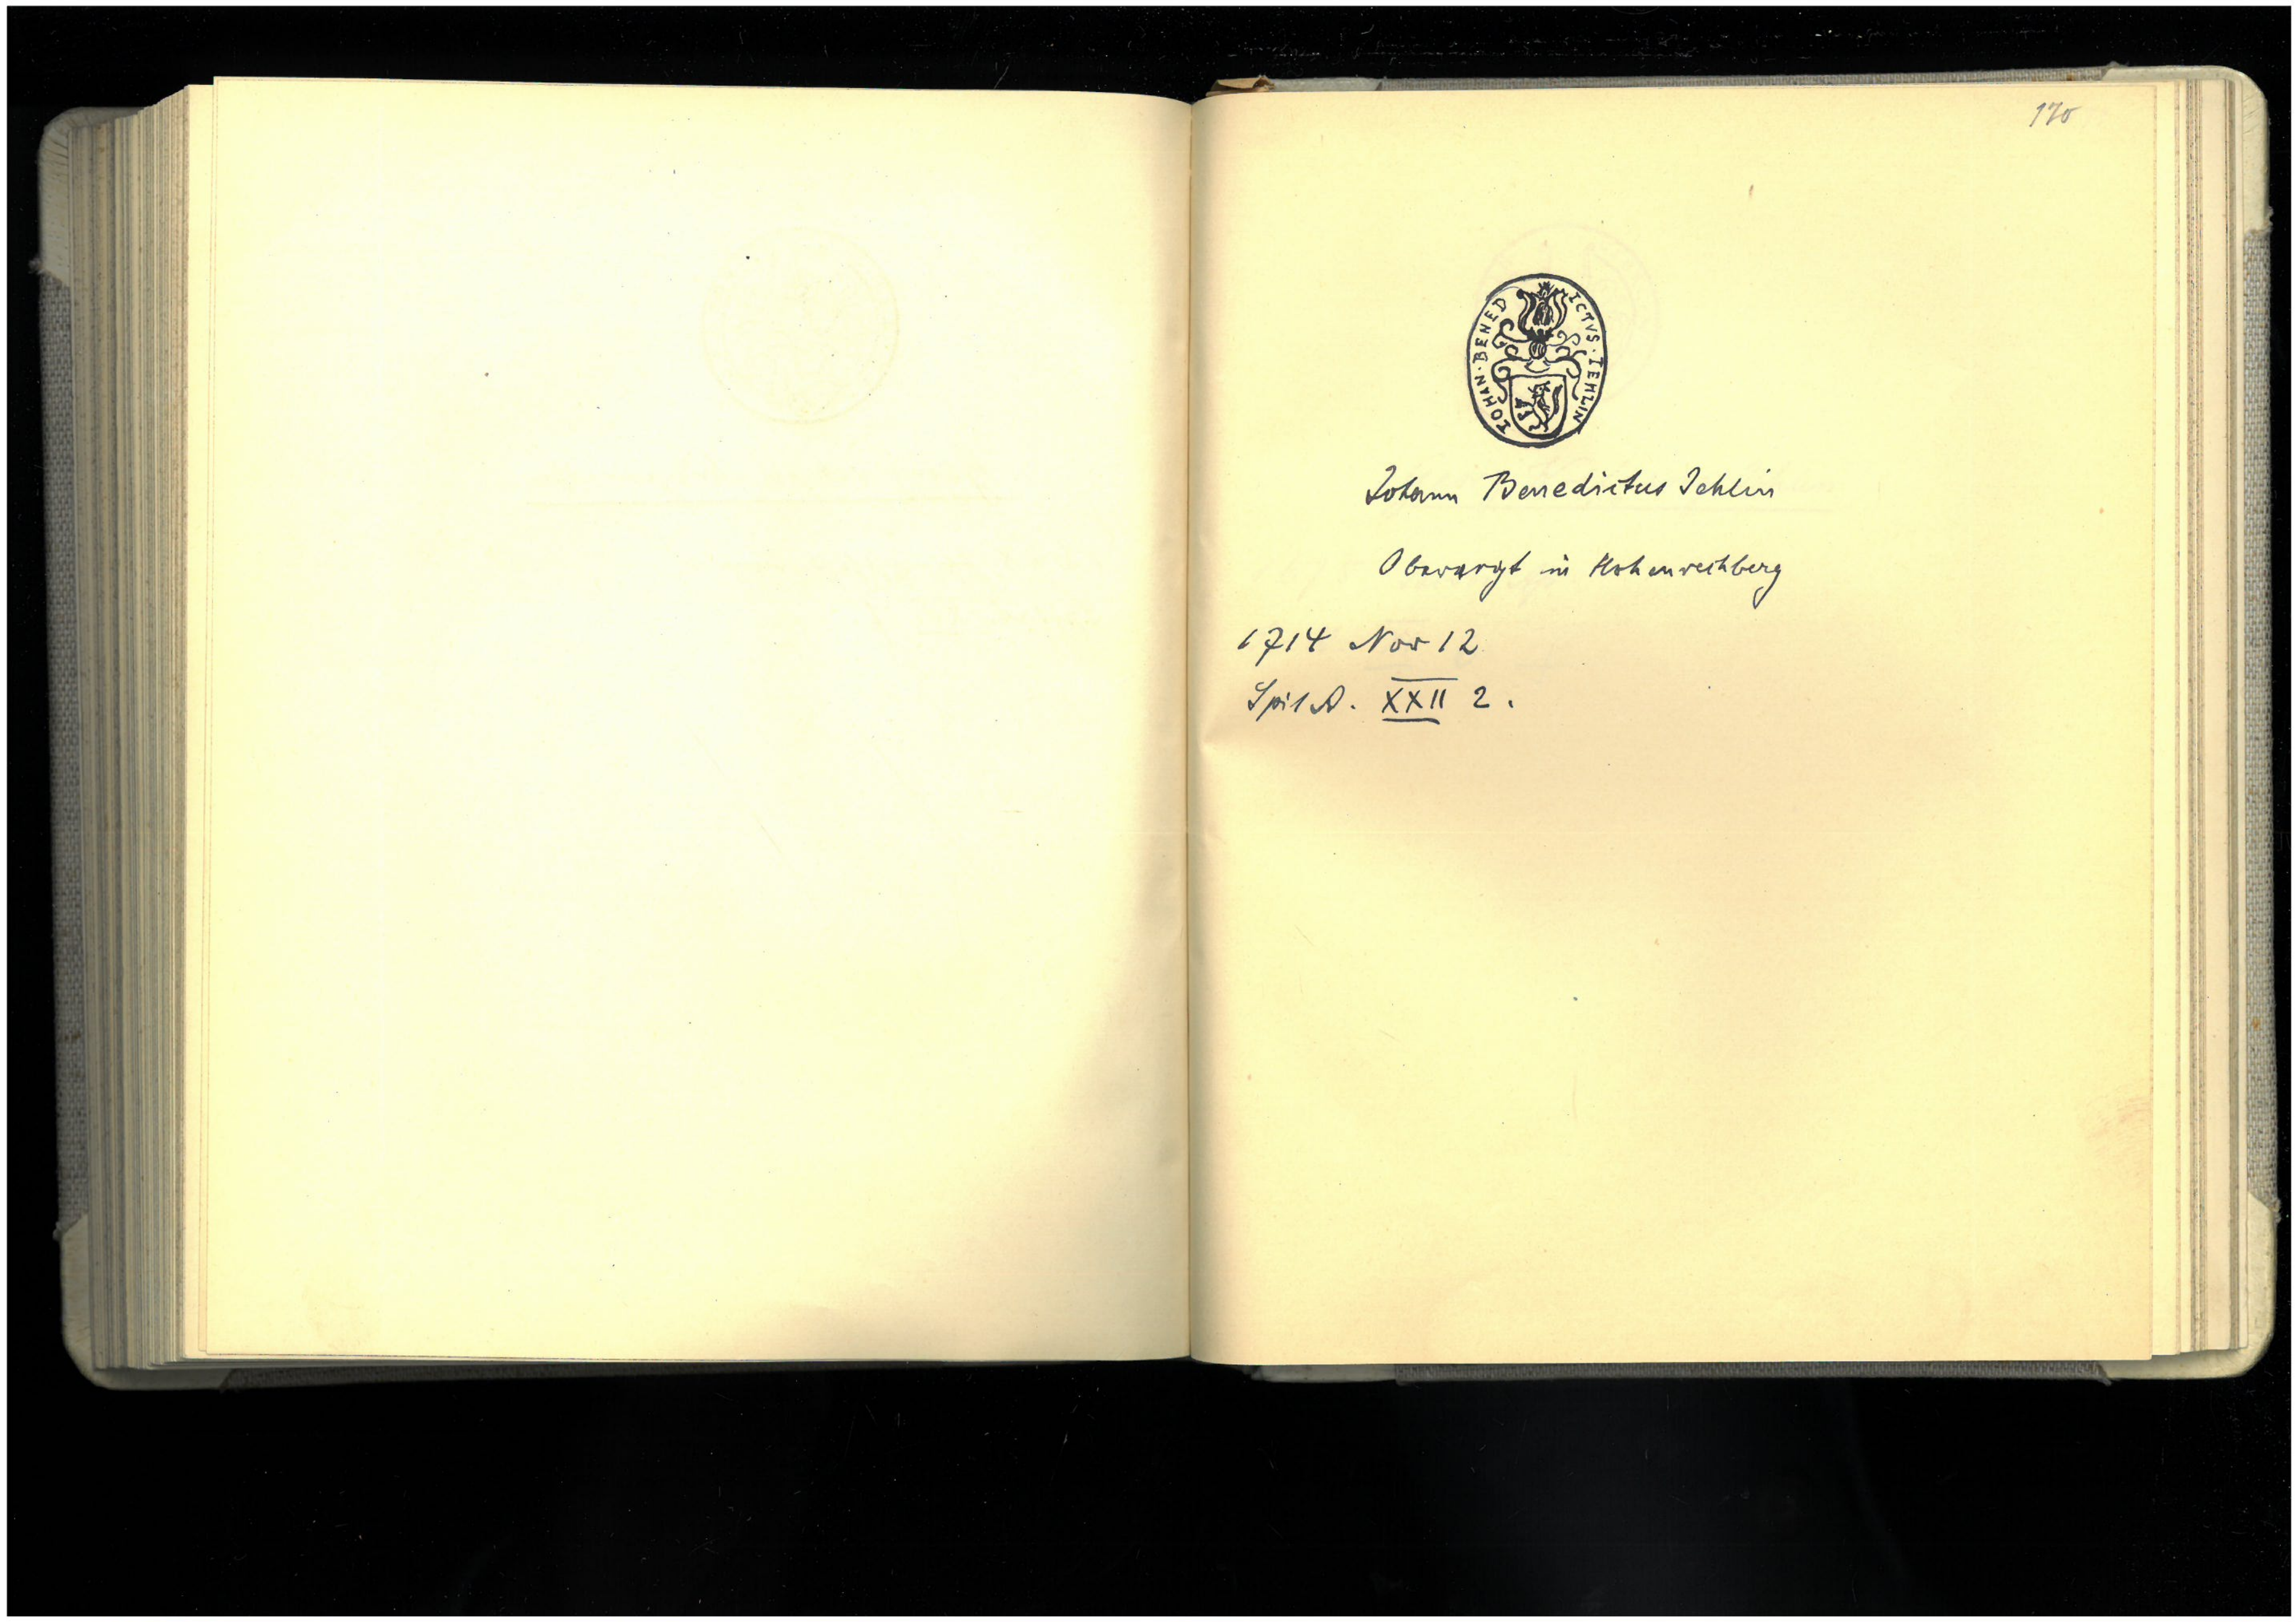 170
IOHAN · BENED ICTVS · IEHLIN
Johann Benedictus Jehlin
Obervogt in Hohenrechberg
1714 Nov 12
Spit A. XXII 2.